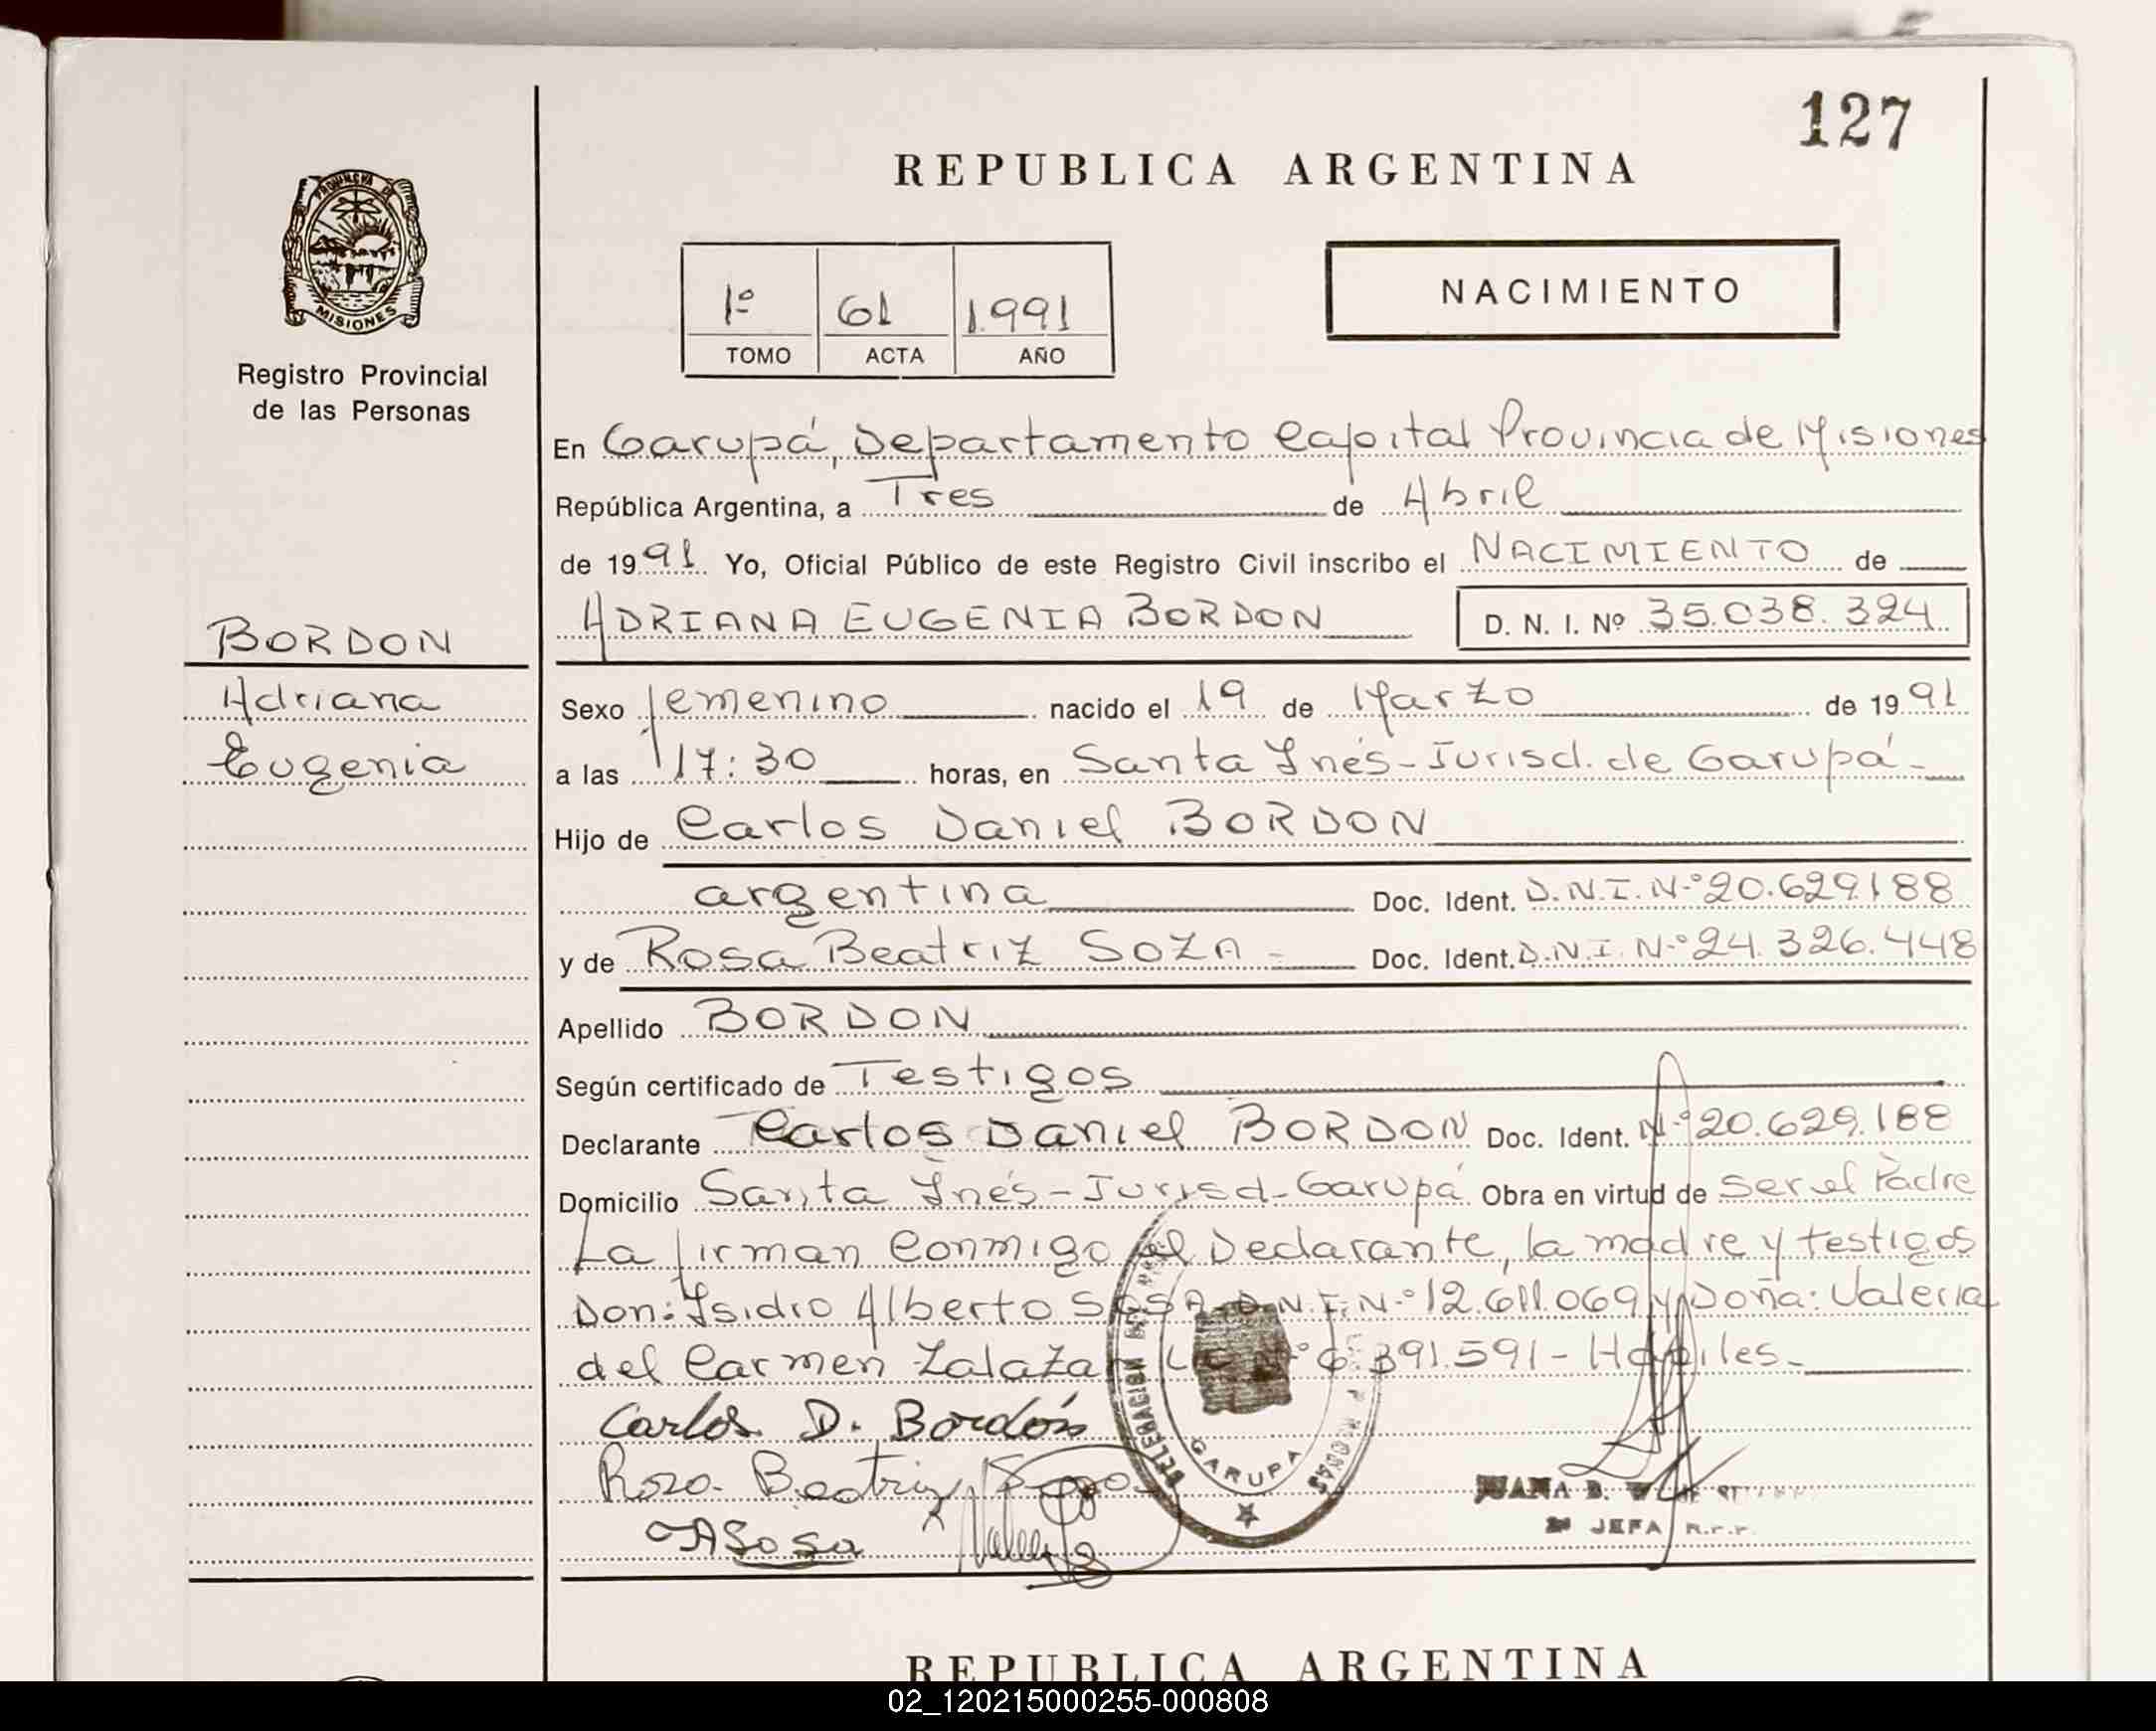 127
REPUBLICA ARGENTINA
PROVINCIA DE
MISIONES
Registro Provincial
de las Personas
1º 61 1991
TOMO ACTA AÑO
NACIMIENTO
En Garupá, Departamento Capital Provincia de Misiones
República Argentina, a Tres de Abril
de 1991 Yo, Oficial Público de este Registro Civil inscribo el NACIMIENTO de
BORDON
ADRIANA EUGENIA BORDON D. N. I. Nº 35.038.324
Adriana
Sexo femenino nacido el 19 de Marzo de 1991
Eugenia
a las 17:30 horas, en Santa Inés - Jurisd. de Garupá -
Hijo de Carlos Daniel BORDON
argentina Doc. Ident. D.N.I. Nº 20.629.188
y de Rosa Beatriz SOZA - Doc. Ident. D.N.I. Nº 24.326.448
Apellido BORDON
Según certificado de Testigos
Declarante Carlos Daniel BORDON Doc. Ident. Nº 20.629.188
Domicilio Santa Inés - Jurisd - Garupá Obra en virtud de ser el Padre
La firman conmigo el Declarante, la madre y testigos
Don: Isidro Alberto SOSA D.N.I. Nº 12.611.069 y Doña: Valeria
del Carmen Zalazar L.C. Nº 6.391.591 - Hábiles -
Carlos D. Bordón
Rosa Beatriz
A Sosa
DELEGACION
GARUPA
JUANA B.
JEFA R.P.P.
REPUBLICA ARGENTINA
02_120215000255-000808